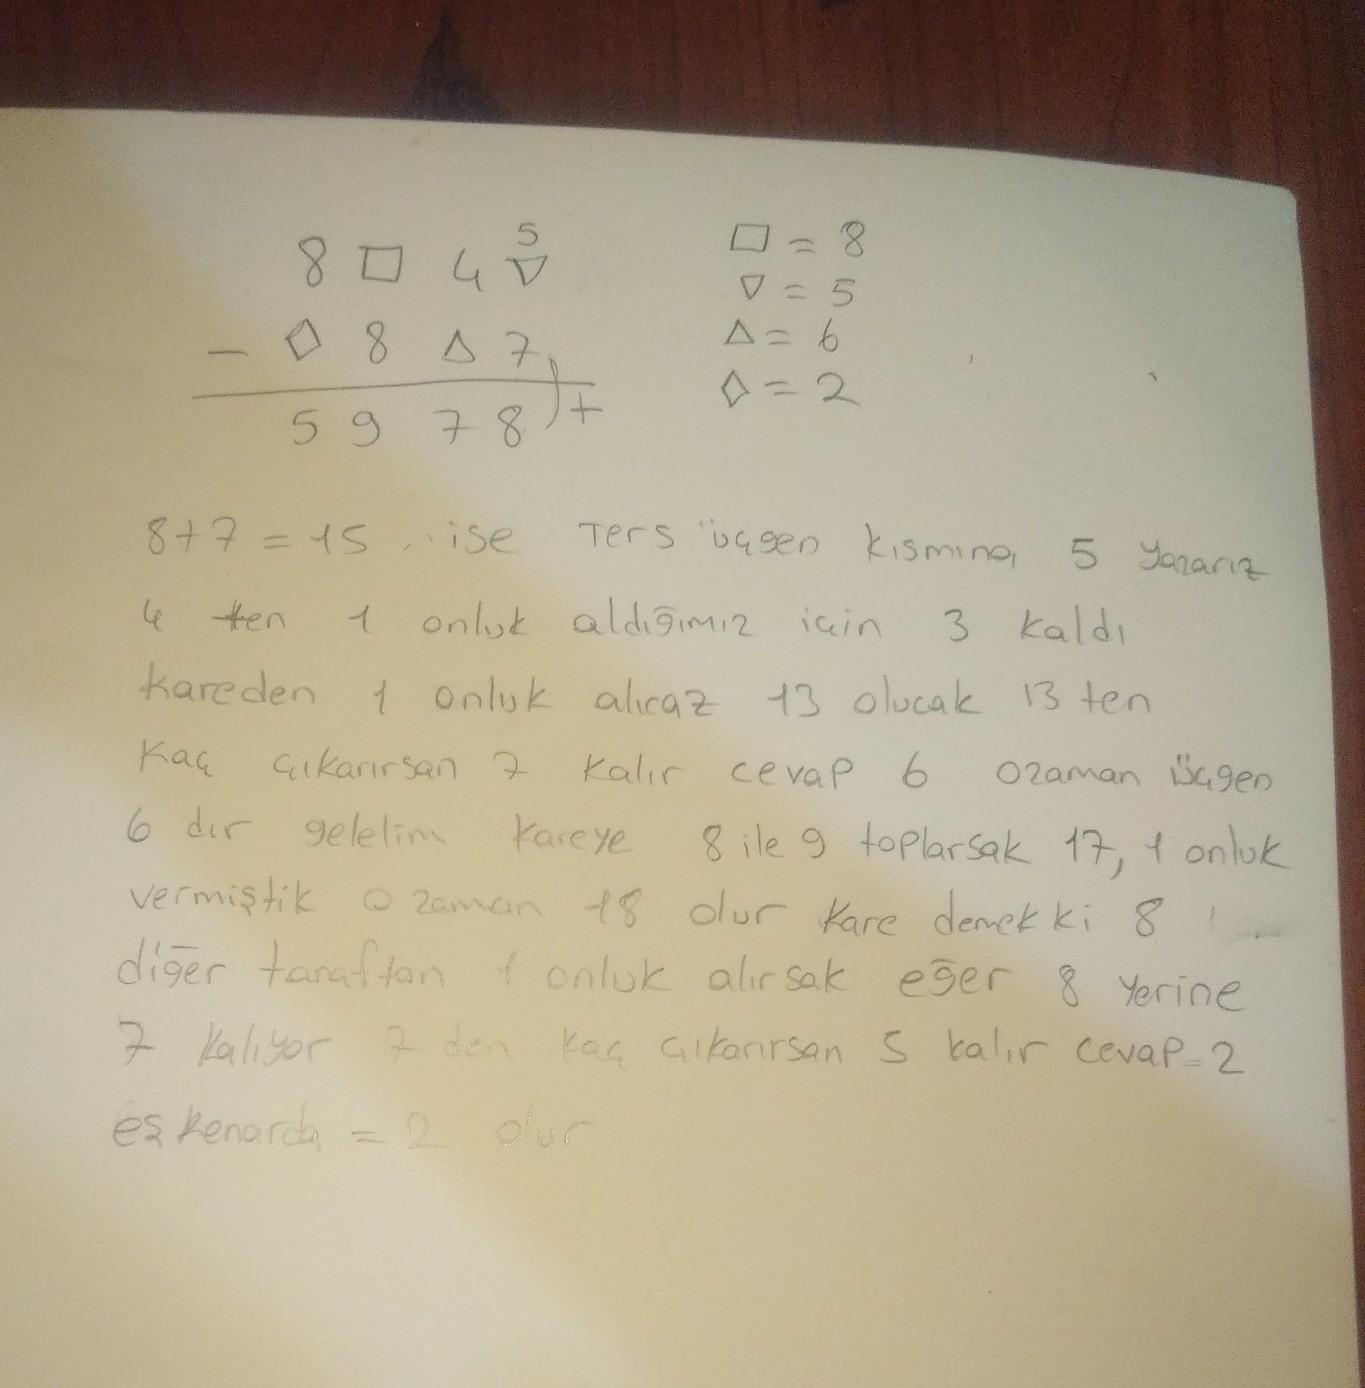 8 □ 4 ▽ 5
- ◇ 8 △ 7
5 9 7 8 +
□ = 8
▽ = 5
△ = 6
◇ = 2
8+7 = 15 ise Ters üçgen kısmına 5 yazarız
4 ten 1 onluk aldığımız için 3 kaldı
kareden 1 onluk alıcaz 13 olucak 13 ten
kaç çıkarırsan 7 kalır cevap 6 ozaman üçgen
6 dır gelelim kareye 8 ile 9 toplarsak 17, 1 onluk
vermiştik o zaman 18 olur kare demekki 8
diğer taraftan 1 onluk alırsak eğer 8 yerine
7 kalıyor 7 den kaç çıkarırsan 5 kalır cevap = 2
eşkenarda = 2 olur